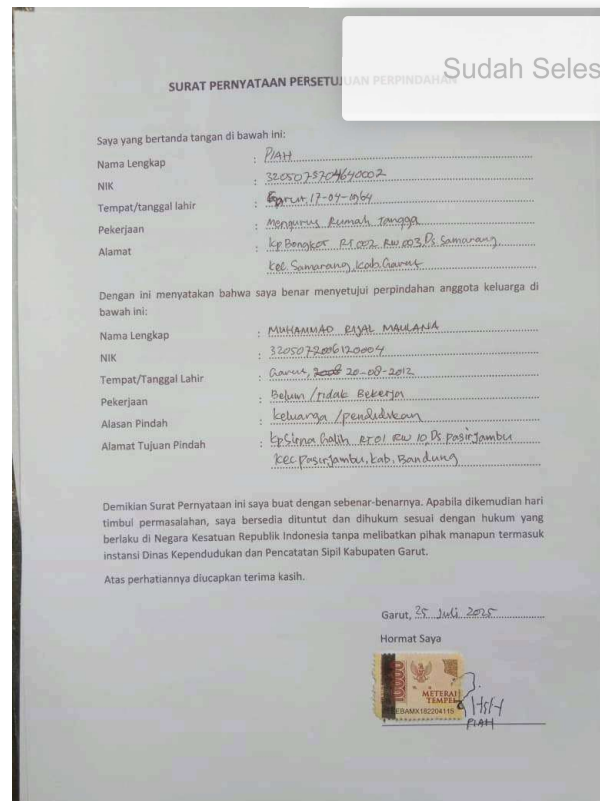 Sudah Seles
SURAT PERNYATAAN PERSETUJUAN PERPINDAHAN
Saya yang bertanda tangan di bawah ini:
Nama Lengkap : PIAH
NIK : 3205075704640002
Tempat/tanggal lahir : Garut, 17-04-1964
Pekerjaan : Mengurus Rumah Tangga
Alamat : Kp Bongkor RT 002 RW 003, Ds. Samarang
Kec. Samarang, Kab. Garut
Dengan ini menyatakan bahwa saya benar menyetujui perpindahan anggota keluarga di
bawah ini:
Nama Lengkap : MUHAMMAD RIJAL MAULANA
NIK : 3205072006120004
Tempat/Tanggal Lahir : Garut, 20-08-2012
Pekerjaan : Belum /tidak Bekerja
Alasan Pindah : keluarga /pendidikan
Alamat Tujuan Pindah : Kp Sirna Galih RT 01 RW 10, Ds. Pasirjambu
Kec Pasirjambu, Kab. Bandung
Demikian Surat Pernyataan ini saya buat dengan sebenar-benarnya. Apabila dikemudian hari
timbul permasalahan, saya bersedia dituntut dan dihukum sesuai dengan hukum yang
berlaku di Negara Kesatuan Republik Indonesia tanpa melibatkan pihak manapun termasuk
instansi Dinas Kependudukan dan Pencatatan Sipil Kabupaten Garut.
Atas perhatiannya diucapkan terima kasih.
Garut, 25 Juli 2025
Hormat Saya
10000
METERAI
TEMPEL
EBAMX182204115
PIAH